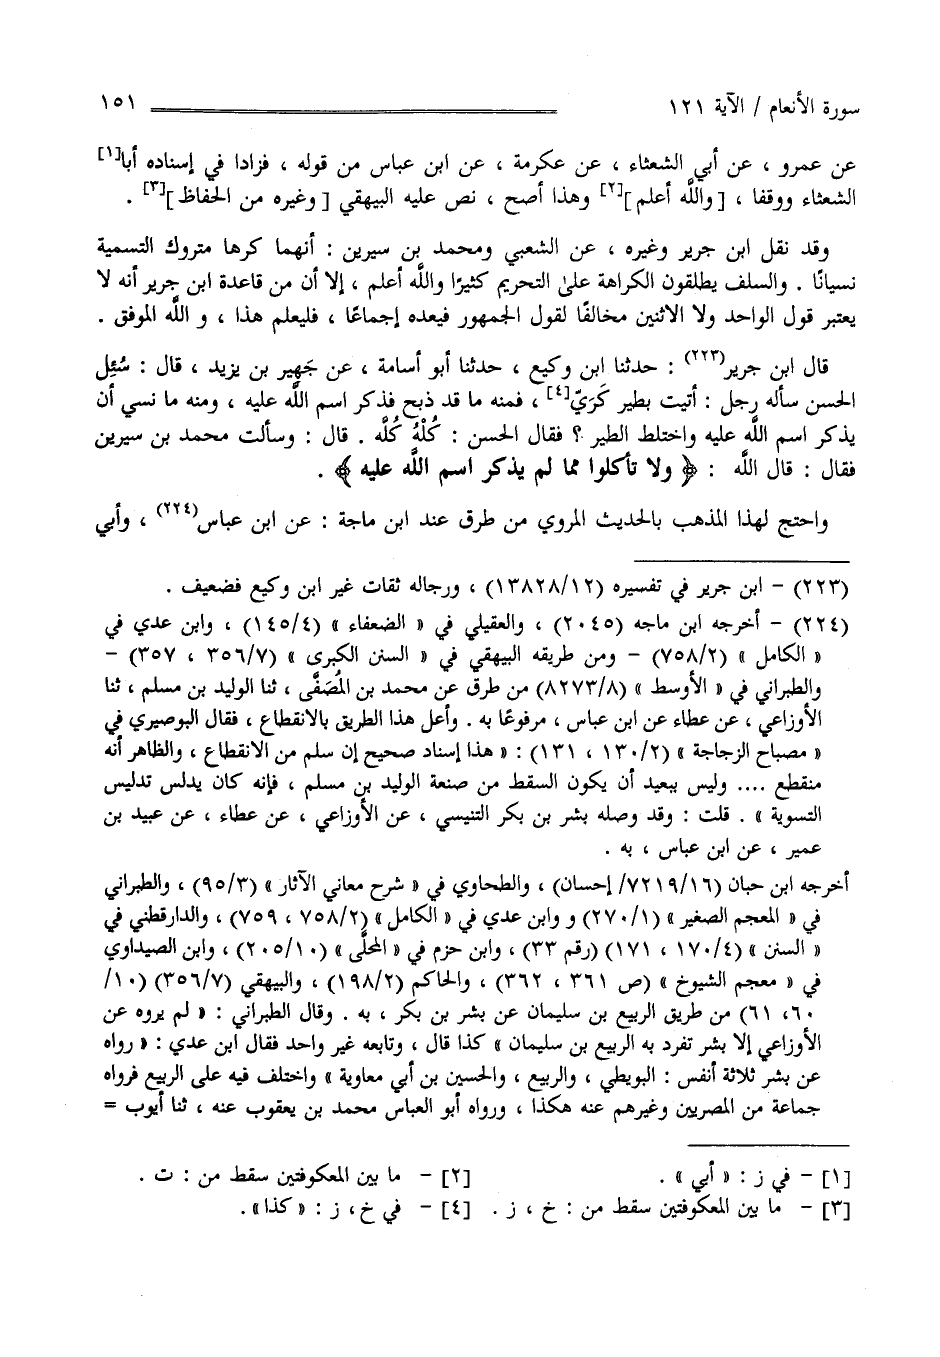 سورة الأنعام / الآية ١٢١ ١٥١
عن عمرو ، عن أبي الشعثاء ، عن عكرمة ، عن ابن عباس من قوله ، فزادا في إسناده أبا[١]
الشعثاء ووقفا ، [ والله أعلم ][٢] وهذا أصح ، نص عليه البيهقي [ وغيره من الحفاظ ][٣] .
وقد نقل ابن جرير وغيره ، عن الشعبي ومحمد بن سيرين : أنهما كرها متروك التسمية
نسيانًا . والسلف يطلقون الكراهة على التحريم كثيرًا والله أعلم ، إلا أن من قاعدة ابن جرير أنه لا
يعتبر قول الواحد ولا الاثنين مخالفًا لقول الجمهور فيعده إجماعًا ، فليعلم هذا ، و الله الموفق .
قال ابن جرير(٢٢٣) : حدثنا ابن وكيع ، حدثنا أبو أسامة ، عن جَهِير بن يزيد ، قال : سُئِل
الحسن سأله رجل : أتيت بطير كَرَيّ[٤] ، فمنه ما قد ذبح فذكر اسم الله عليه ، ومنه ما نسي أن
يذكر اسم الله عليه واختلط الطير ؟ فقال الحسن : كُلْهُ كُلَّه . قال : وسألت محمد بن سيرين
فقال : قال الله : ﴿ ولا تأكلوا مما لم يذكر اسم الله عليه ﴾ .
واحتج لهذا المذهب بالحديث المروي من طرق عند ابن ماجة : عن ابن عباس(٢٢٤) ، وأبي
(٢٢٣) - ابن جرير في تفسيره (١٣٨٢٨/١٢) ، ورجاله ثقات غير ابن وكيع فضعيف .
(٢٢٤) - أخرجه ابن ماجه (٢٠٤٥) ، والعقيلي في « الضعفاء » (١٤٥/٤) ، وابن عدي في
« الكامل » (٧٥٨/٢) - ومن طريقه البيهقي في « السنن الكبرى » (٣٥٦/٧ ، ٣٥٧) -
والطبراني في « الأوسط » (٨٢٧٣/٨) من طرق عن محمد بن المُصَفَّى ، ثنا الوليد بن مسلم ، ثنا
الأوزاعي ، عن عطاء عن ابن عباس ، مرفوعًا به . وأعل هذا الطريق بالانقطاع ، فقال البوصيري في
« مصباح الزجاجة » (١٣٠/٢ ، ١٣١) : « هذا إسناد صحيح إن سلم من الانقطاع ، والظاهر أنه
منقطع .... وليس ببعيد أن يكون السقط من صنعة الوليد بن مسلم ، فإنه كان يدلس تدليس
التسوية » . قلت : وقد وصله بشر بن بكر التنيسي ، عن الأوزاعي ، عن عطاء ، عن عبيد بن
عمير ، عن ابن عباس ، به .
أخرجه ابن حبان (٧٢١٩/١٦/ إحسان) ، والطحاوي في « شرح معاني الآثار » (٩٥/٣) ، والطبراني
في « المعجم الصغير » (٢٧٠/١) و وابن عدي في « الكامل » (٧٥٨/٢ ، ٧٥٩) ، والدارقطني في
« السنن » (١٧٠/٤ ، ١٧١) (رقم ٣٣) ، وابن حزم في « المحلَّى » (٢٠٥/١٠) ، وابن الصيداوي
في « معجم الشيوخ » (ص ٣٦١ ، ٣٦٢) ، والحاكم (١٩٨/٢) ، والبيهقي (٣٥٦/٧) (١٠/
٦٠، ٦١) من طريق الربيع بن سليمان عن بشر بن بكر ، به . وقال الطبراني : « لم يروه عن
الأوزاعي إلا بشر تفرد به الربيع بن سليمان » كذا قال ، وتابعه غير واحد فقال ابن عدي : « رواه
عن بشر ثلاثة أنفس : البويطي ، والربيع ، والحسين بن أبي معاوية » واختلف فيه على الربيع فرواه
جماعة من المصريين وغيرهم عنه هكذا ، ورواه أبو العباس محمد بن يعقوب عنه ، ثنا أيوب =
[١] - في ز : « أبي » . [٢] - ما بين المعكوفتين سقط من : ت .
[٣] - ما بين المعكوفتين سقط من : خ ، ز . [٤] - في خ، ز : «كذا».